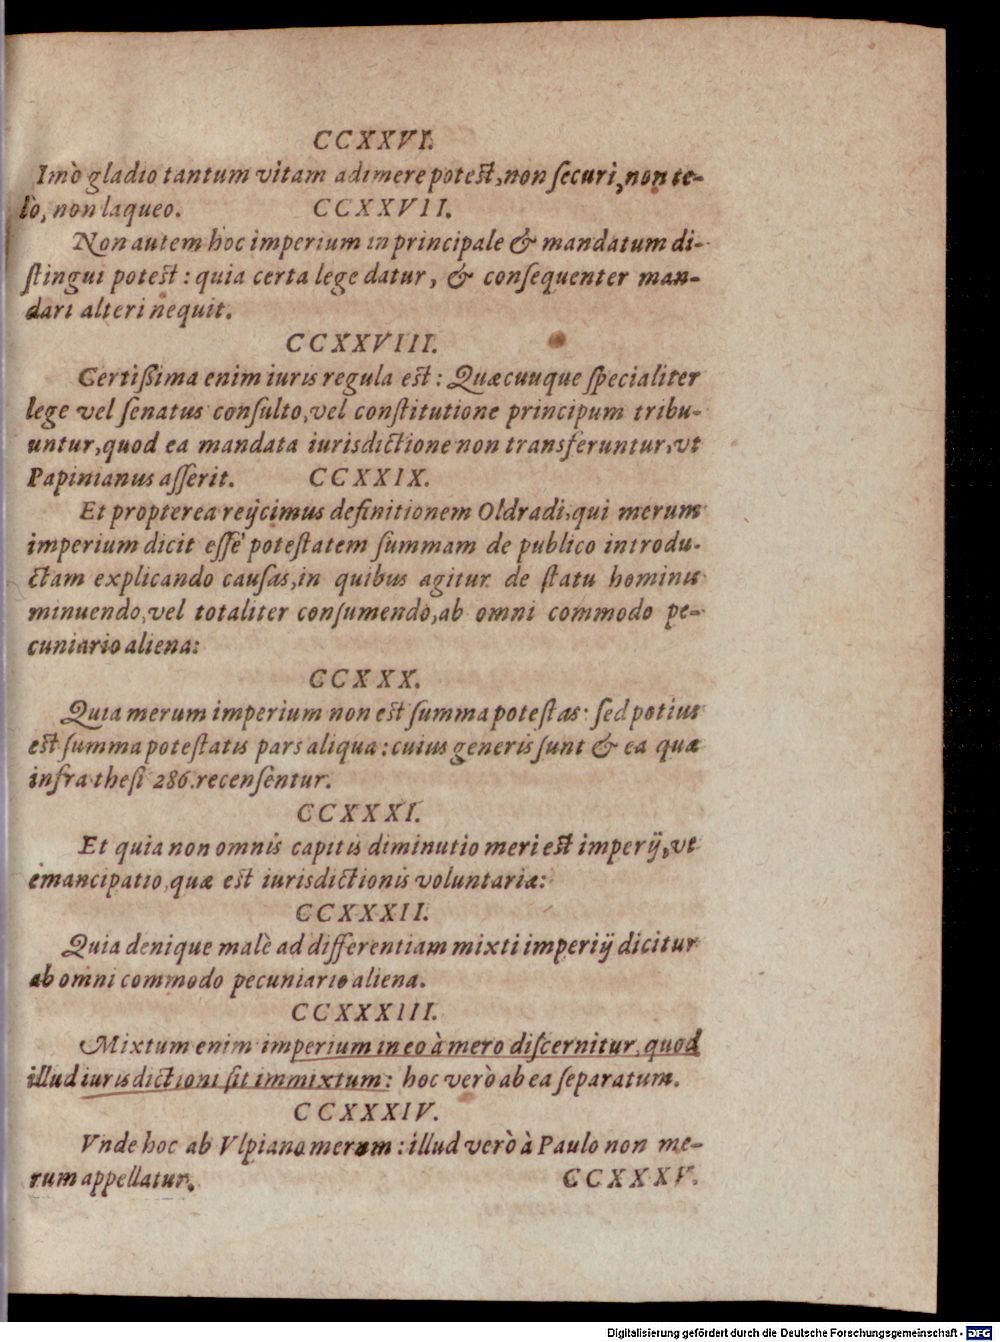 CCXXVI.
Imò gladio tantum vitam adimere potest, non ſecuri, non te-
lo, non laqueo. CCXXVII.
Non autem hoc imperium in principale & mandatum di-
ſtingui potest: quia certa lege datur, & conſequenter man-
dari alteri nequit.
CCXXVIII.
Certißima enim iuris regula est: Quæcuuque ſpecialiter
lege vel ſenatus conſulto, vel conſtitutione principum tribu-
untur, quod ea mandata iurisdictione non transferuntur, vt
Papinianus aſſerit. CCXXIX.
Et propterea reijcimus definitionem Oldradi, qui merum
imperium dicit eſſe poteſtatem ſummam de publico introdu-
ctam explicando cauſas, in quibus agitur de ſtatu hominis
minuendo, vel totaliter conſumendo, ab omni commodo pe-
cuniario aliena:
CCXXX.
Quia merum imperium non est ſumma poteſtas: ſed potius
est ſumma poteſtatis pars aliqua: cuius generis ſunt & ea quæ
infra theſi 286. recenſentur.
CCXXXI.
Et quia non omnis capitis diminutio meri est imperij, vt
emancipatio, quæ est iurisdictionis voluntariæ:
CCXXXII.
Quia denique malè ad differentiam mixti imperiij dicitur
ab omni commodo pecuniario aliena.
CCXXXIII.
Mixtum enim imperium in eo à mero diſcernitur, quod
illud iurisdictioni ſit immixtum: hoc verò ab ea ſeparatum.
CCXXXIV.
Vnde hoc ab Vlpiano merum: illud verò à Paulo non me-
rum appellatur. CCXXXV.
Digitalisierung gefördert durch die Deutsche Forschungsgemeinschaft - DFG